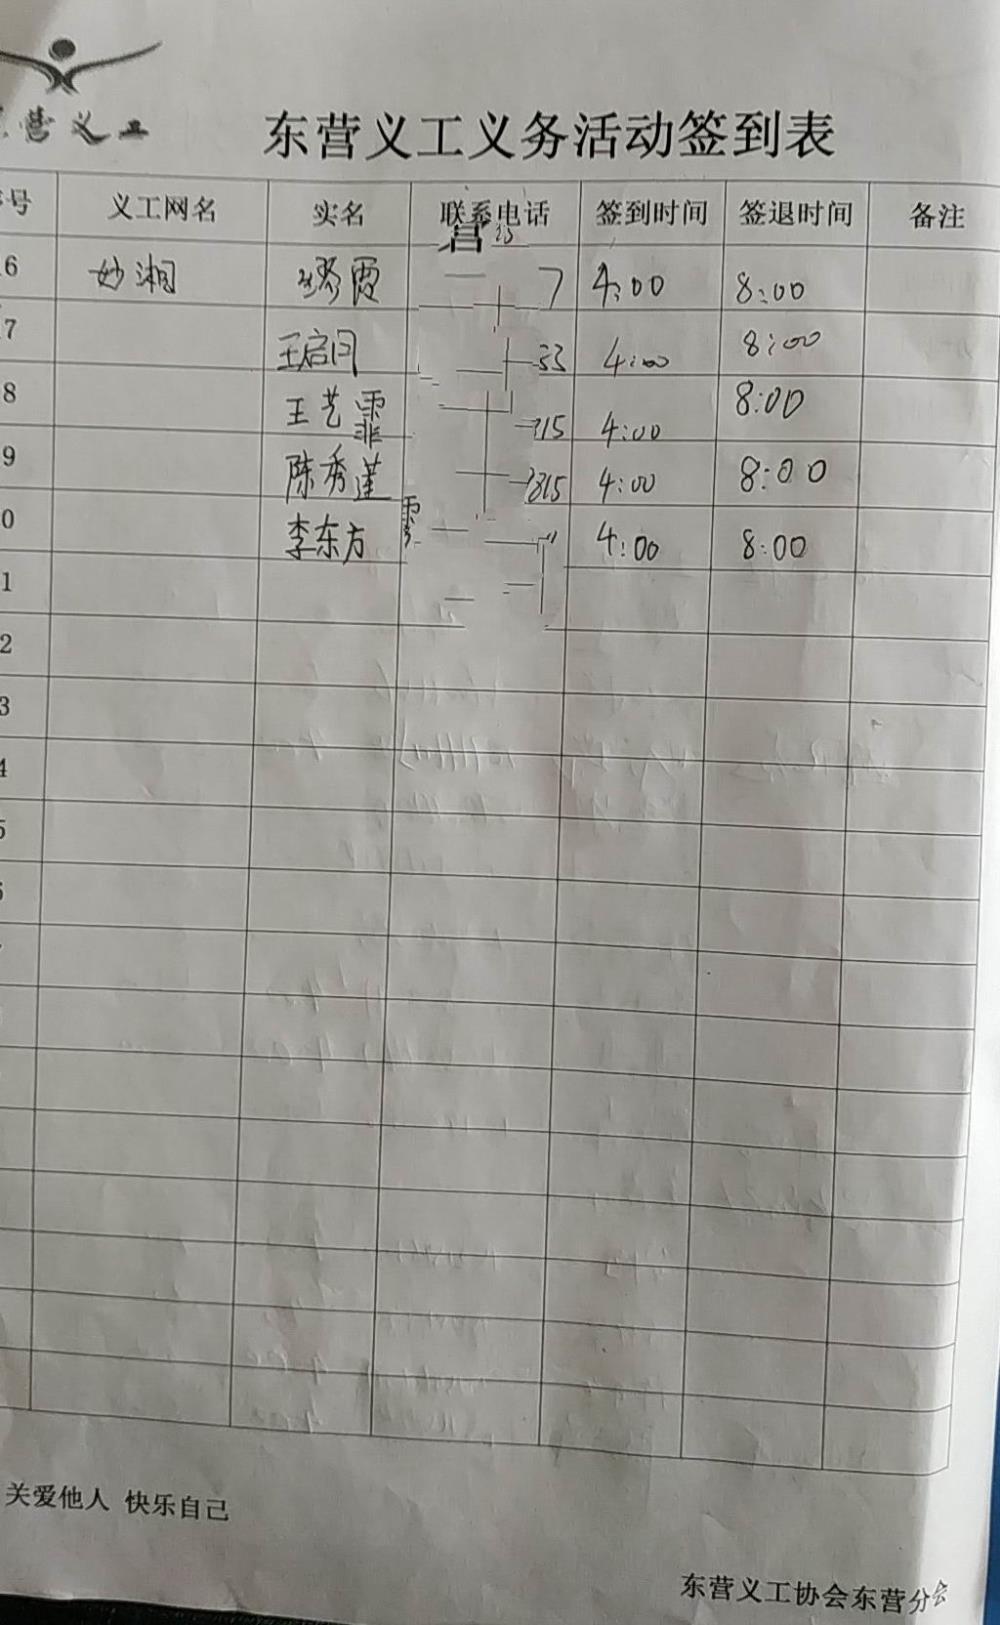 营义工
东营义工义务活动签到表
号 义工网名 实名 联系电话 签到时间 签退时间 备注
6 妙湘 霞 7 4:00 8:00
7 王启 33 4:00 8:00
8 王艺霏 315 4:00 8:00
9 陈秀莲 315 4:00 8:00
0 李东方 4:00 8:00
1
2
3
4
5
关爱他人 快乐自己
东营义工协会东营分会